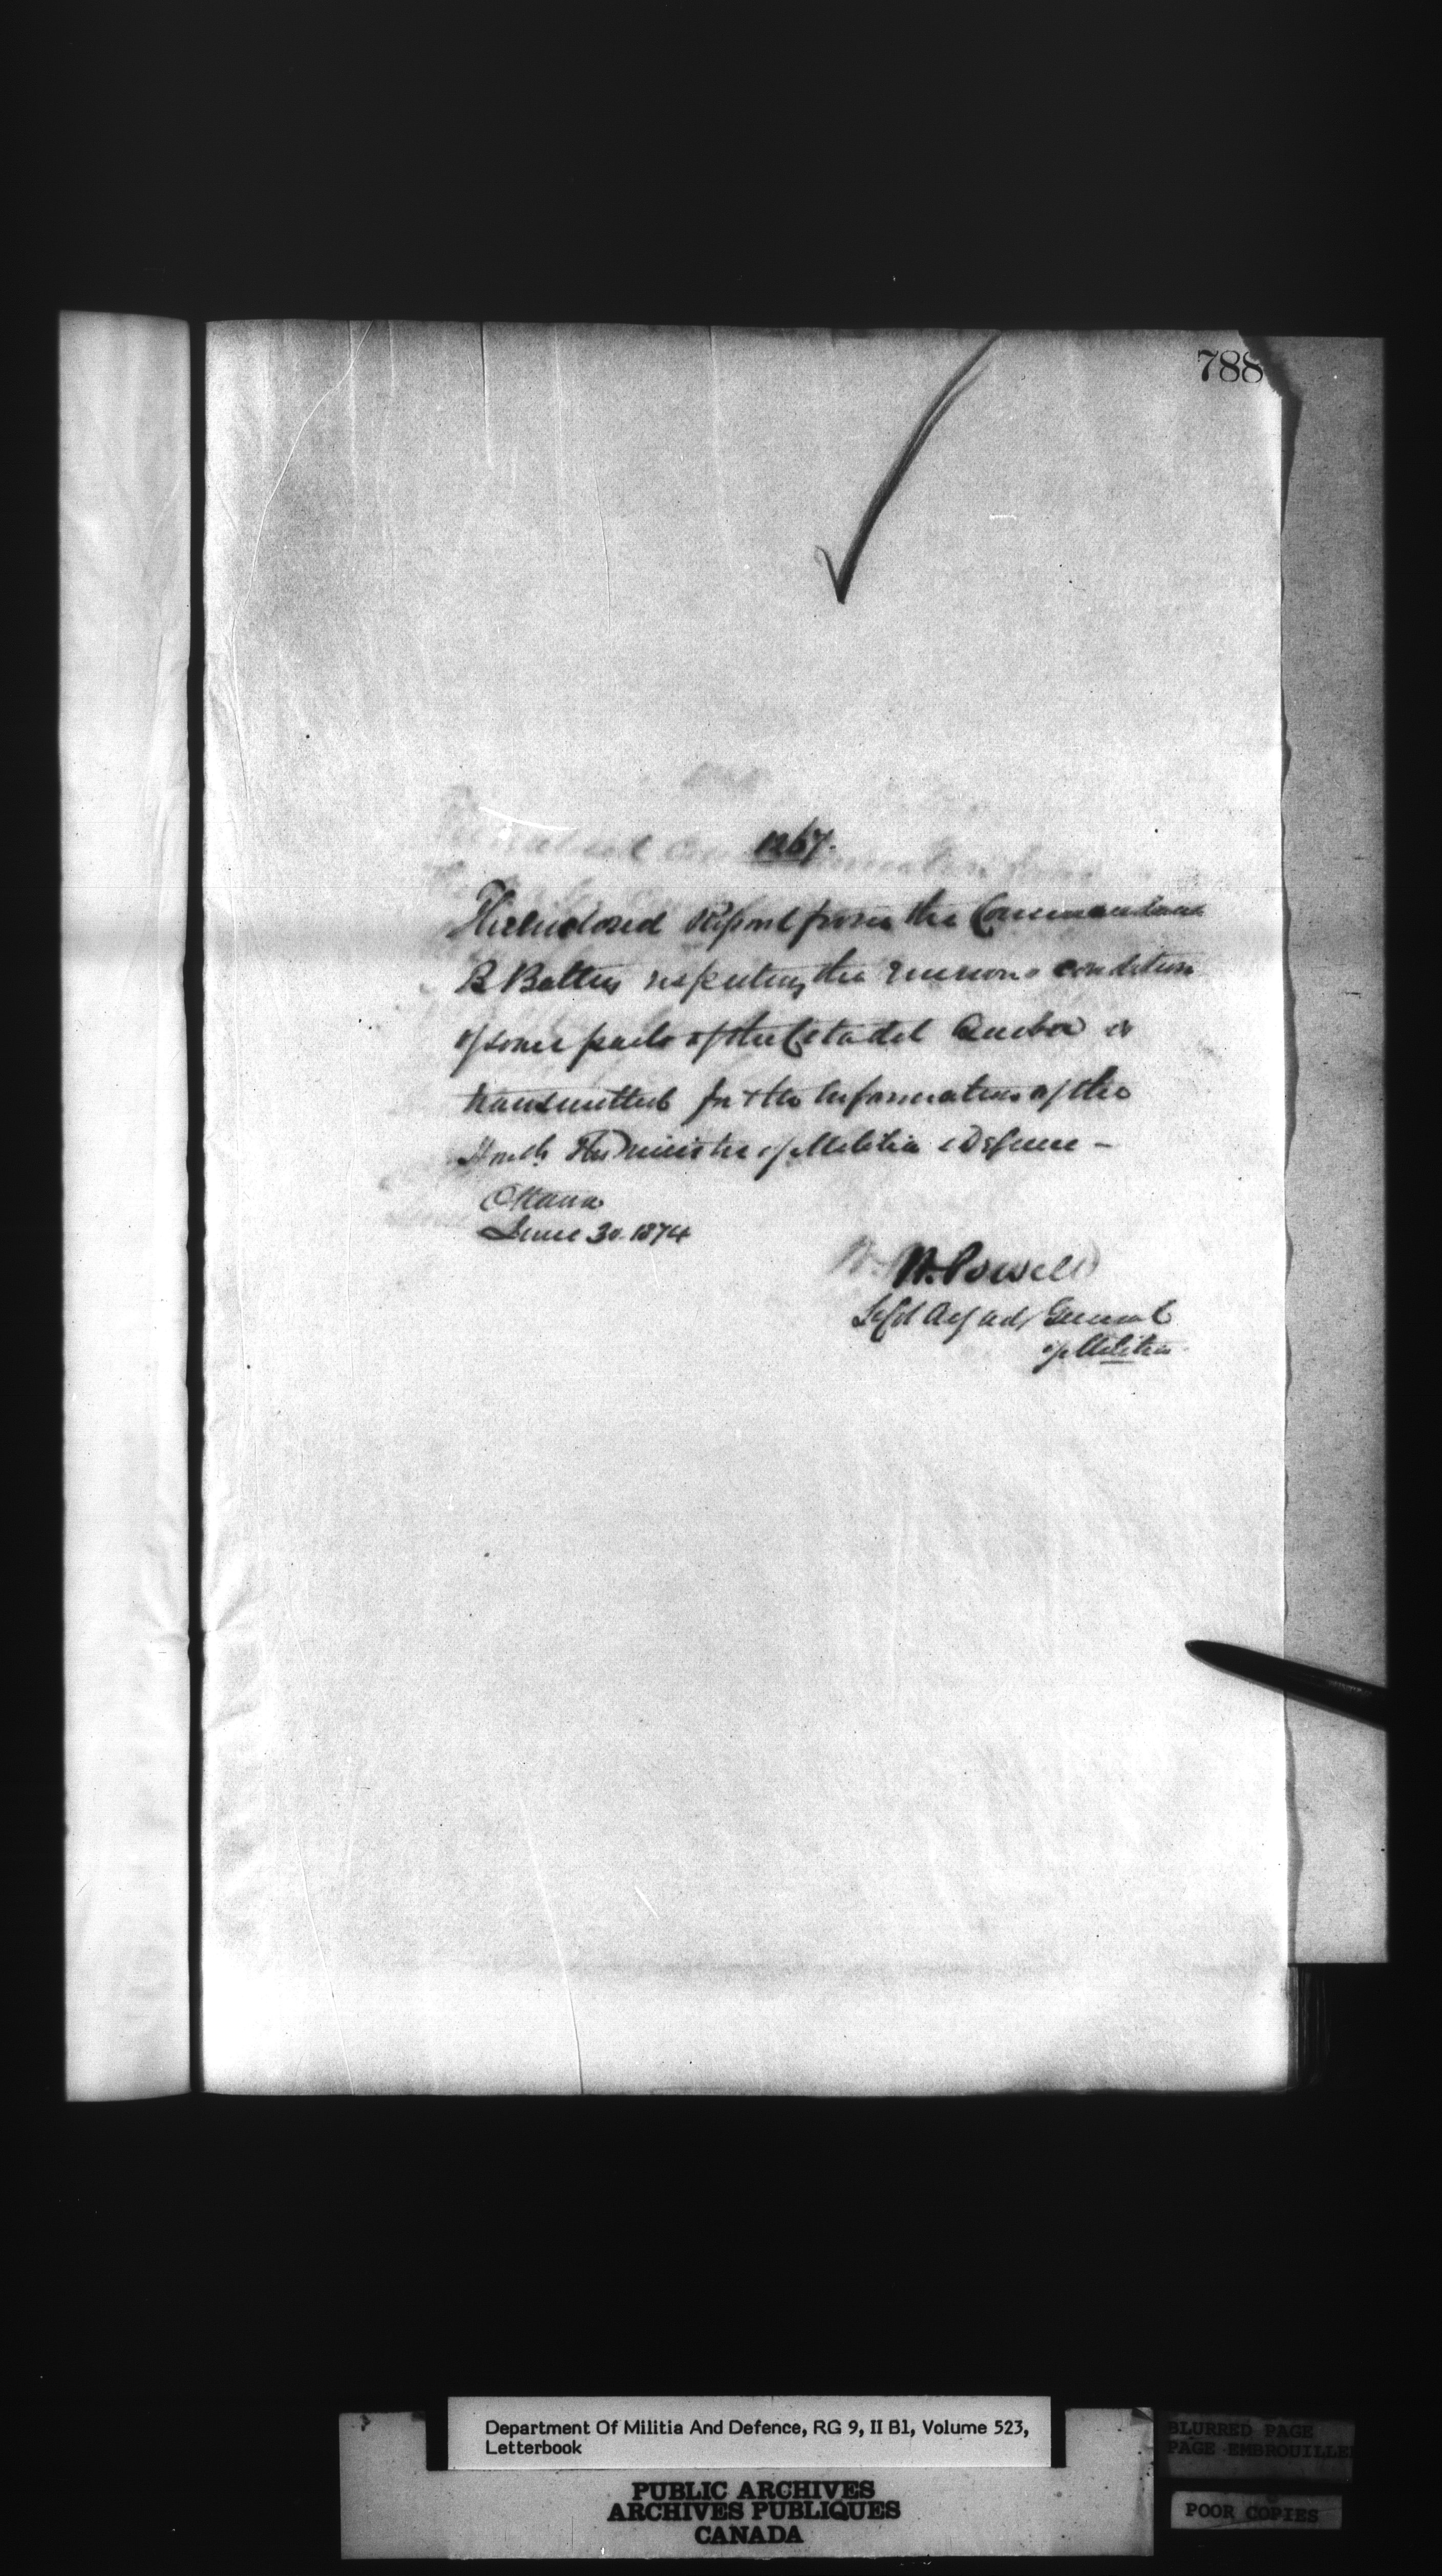 788
1267.
The enclosed Report from the Commandant
B Battery respecting the condition
of some parts of the Citadel Quebec is
transmitted for the information of the
Honble The Minister of Militia & Defence –
Ottawa
June 30. 1874
W. Powell
Adj General
of Militia
Department Of Militia And Defence, RG 9, II B1, Volume 523,
Letterbook
PUBLIC ARCHIVES
ARCHIVES PUBLIQUES
CANADA
BLURRED PAGE
PAGE EMBROUILLE
POOR COPIES